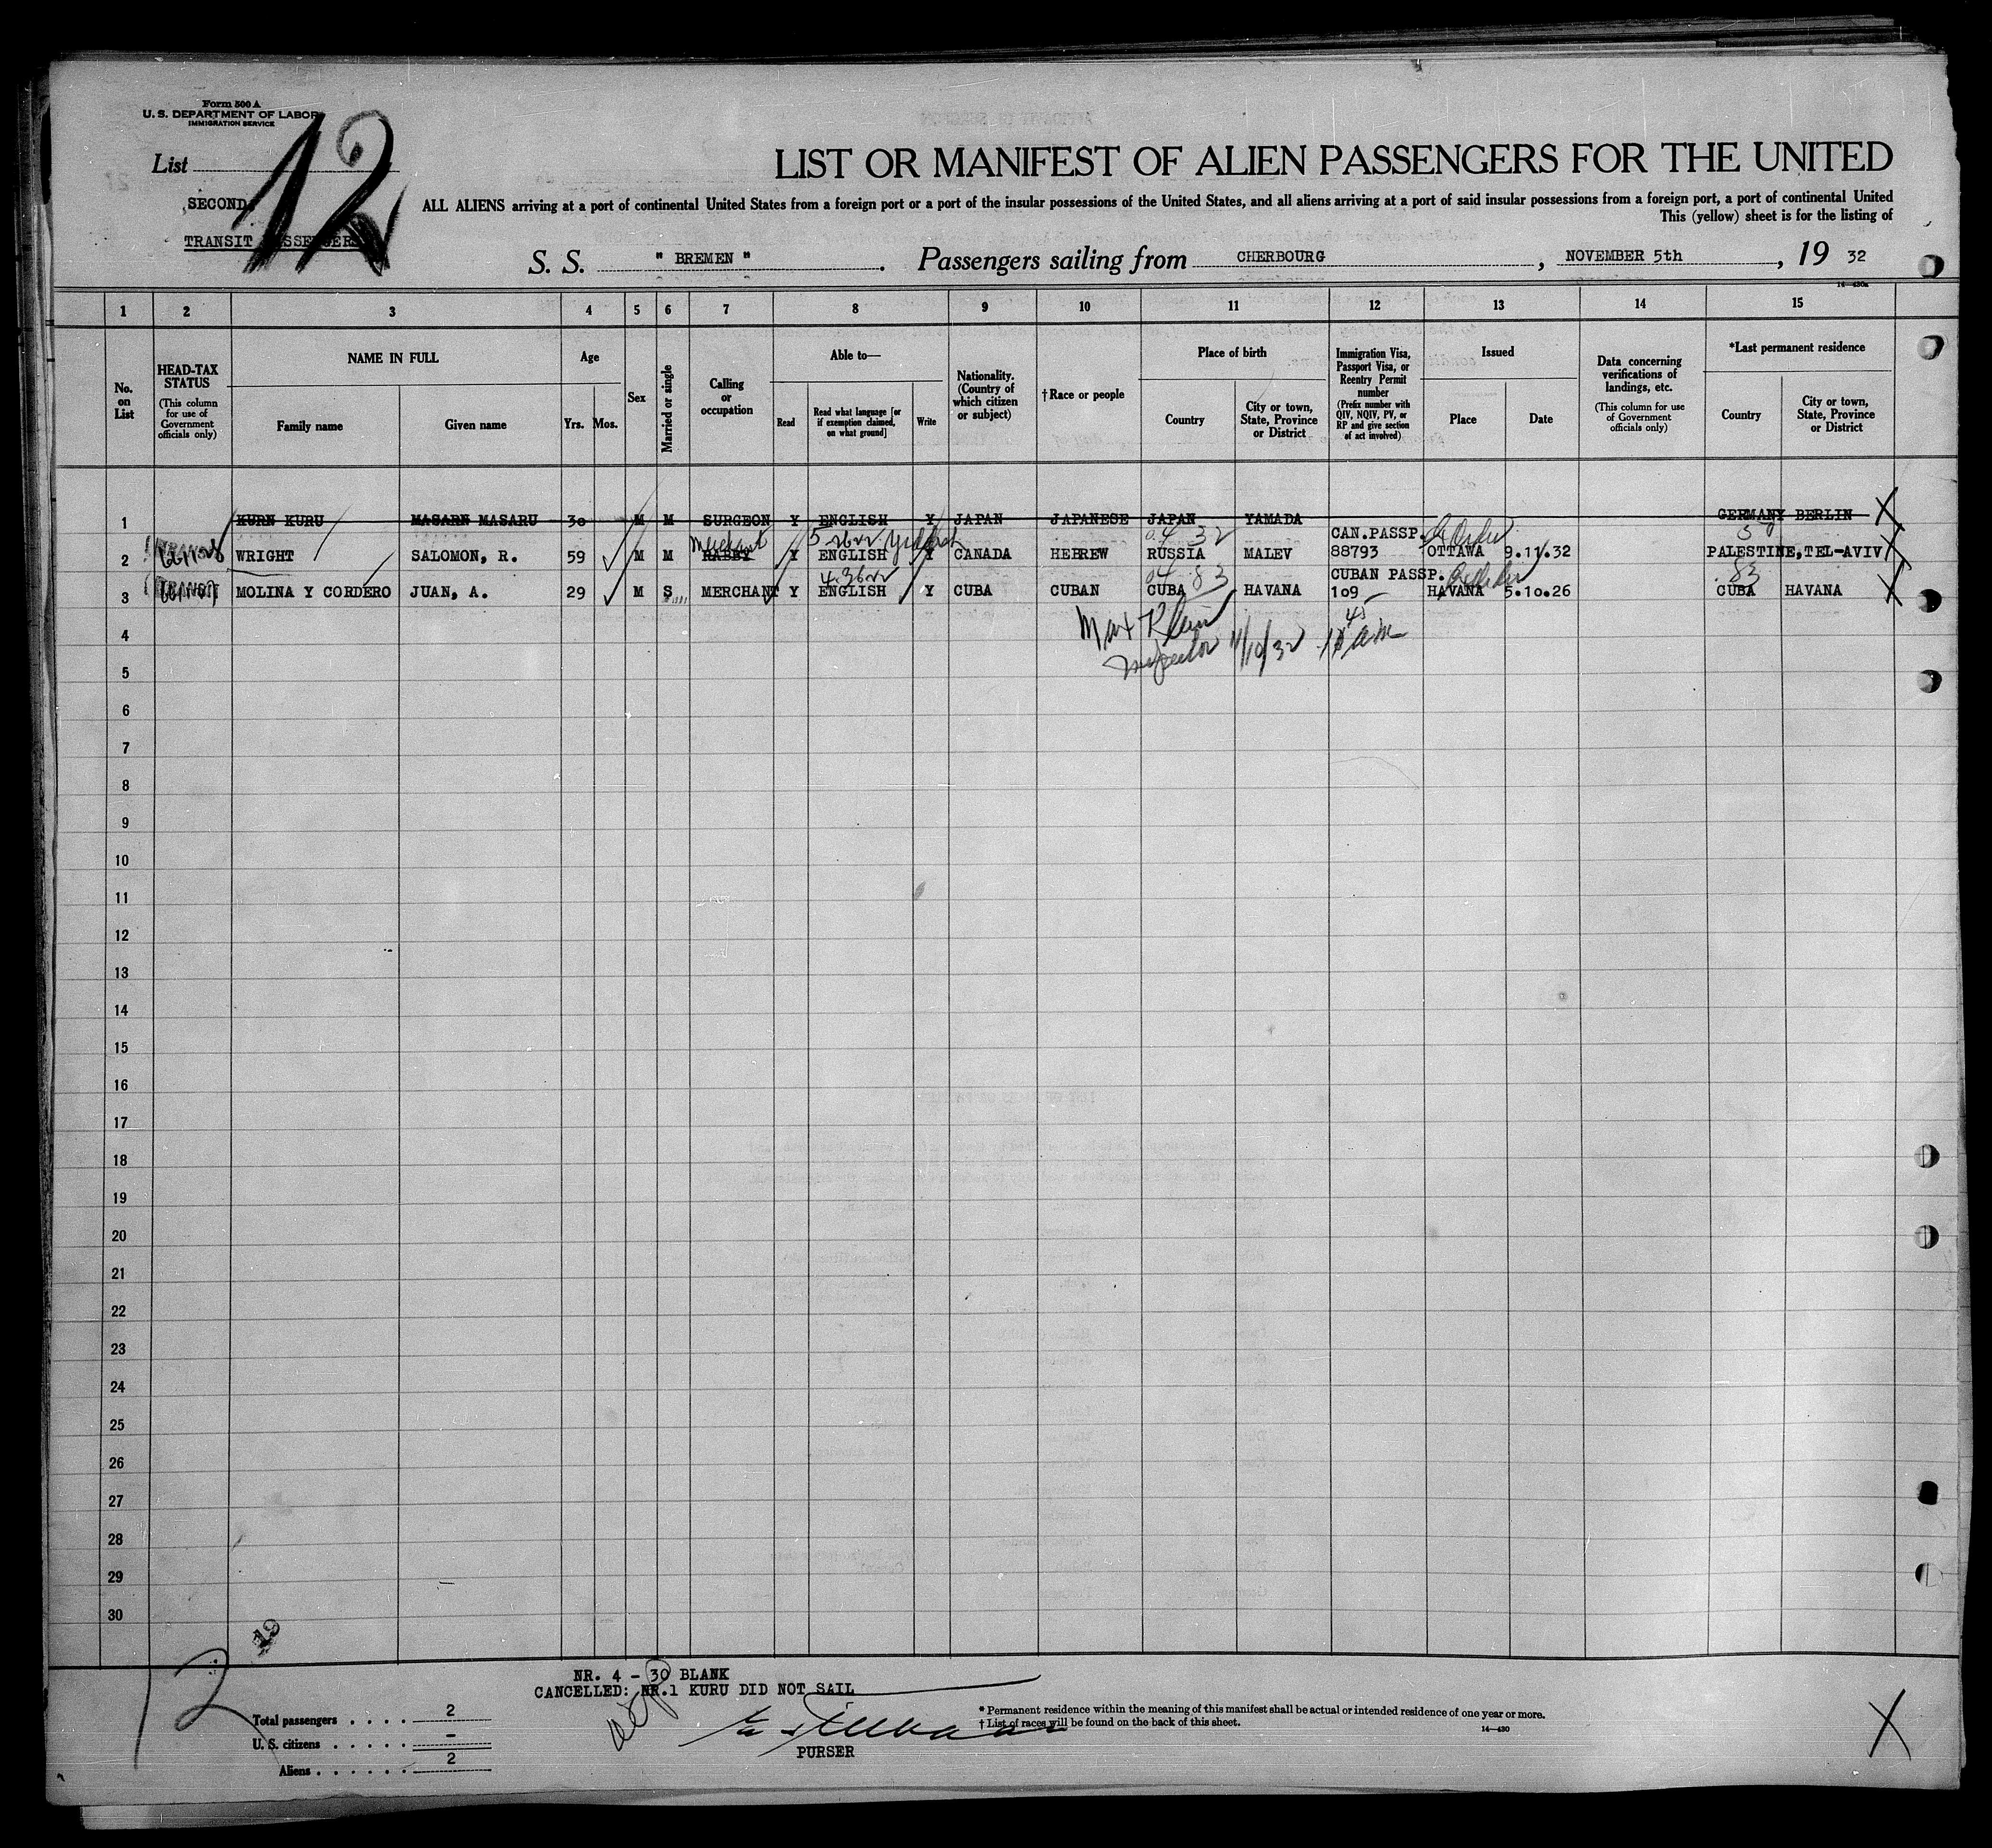 Form 500 A
U. S. DEPARTMENT OF LABOR
IMMIGRATION SERVICE
List 12
SECOND
TRANSIT PASSENGERS
LIST OR MANIFEST OF ALIEN PASSENGERS FOR THE UNITED
ALL ALIENS arriving at a port of continental United States from a foreign port or a port of the insular possessions of the United States, and all aliens arriving at a port of said insular possessions from a foreign port, a port of continental United
This (yellow) sheet is for the listing of
S. S. " BREMEN ". Passengers sailing from CHERBOURG, NOVEMBER 5th, 19 32
14—430a
1 2 3 4 5 6 7 8 9 10 11 12 13 14 15
No. on List
HEAD-TAX STATUS (This column for use of Government officials only)
NAME IN FULL
Family name Given name
Age
Yrs. Mos.
Sex
Married or single
Calling or occupation
Able to—
Read Read what language [or if exemption claimed, on what ground] Write
Nationality. (Country of which citizen or subject)
†Race or people
Place of birth
Country City or town, State, Province or District
Immigration Visa, Passport Visa, or Reentry Permit number (Prefix number with QIV, NQIV, PV, or RP and give section of act involved)
Issued
Place Date
Data concerning verifications of landings, etc. (This column for use of Government officials only)
*Last permanent residence
Country City or town, State, Province or District
1 KURN KURU MASARN MASARU 30 M M SURGEON Y ENGLISH Y JAPAN JAPANESE JAPAN YAMADA GERMANY BERLIN X
Merchant 04 32 CAN.PASSP. 50
2 TRANSIT WRIGHT SALOMON, R. 59 M M RABBY Y ENGLISH Y CANADA HEBREW RUSSIA MALEV 88793 OTTAWA 9.11.32 PALESTINE, TEL-AVIV X
04 83 CUBAN PASSP. 83
3 TRANSIT MOLINA Y CORDERO JUAN, A. 29 M S MERCHANT Y ENGLISH Y CUBA CUBAN CUBA HAVANA 109 HAVANA 5.10.26 CUBA HAVANA X
4 Max Klein
5 Inspector 11/10/32 45 am
6
7
8
9
10
11
12
13
14
15
16
17
18
19
20
21
22
23
24
25
26
27
28
29
30
12 19
NR. 4 - 30 BLANK
CANCELLED: NR.1 KURU DID NOT SAIL
Total passengers . . . . 2
U. S. citizens . . . . . -
Aliens . . . . . . 2
PURSER
* Permanent residence within the meaning of this manifest shall be actual or intended residence of one year or more.
† List of races will be found on the back of this sheet.
14—430
X